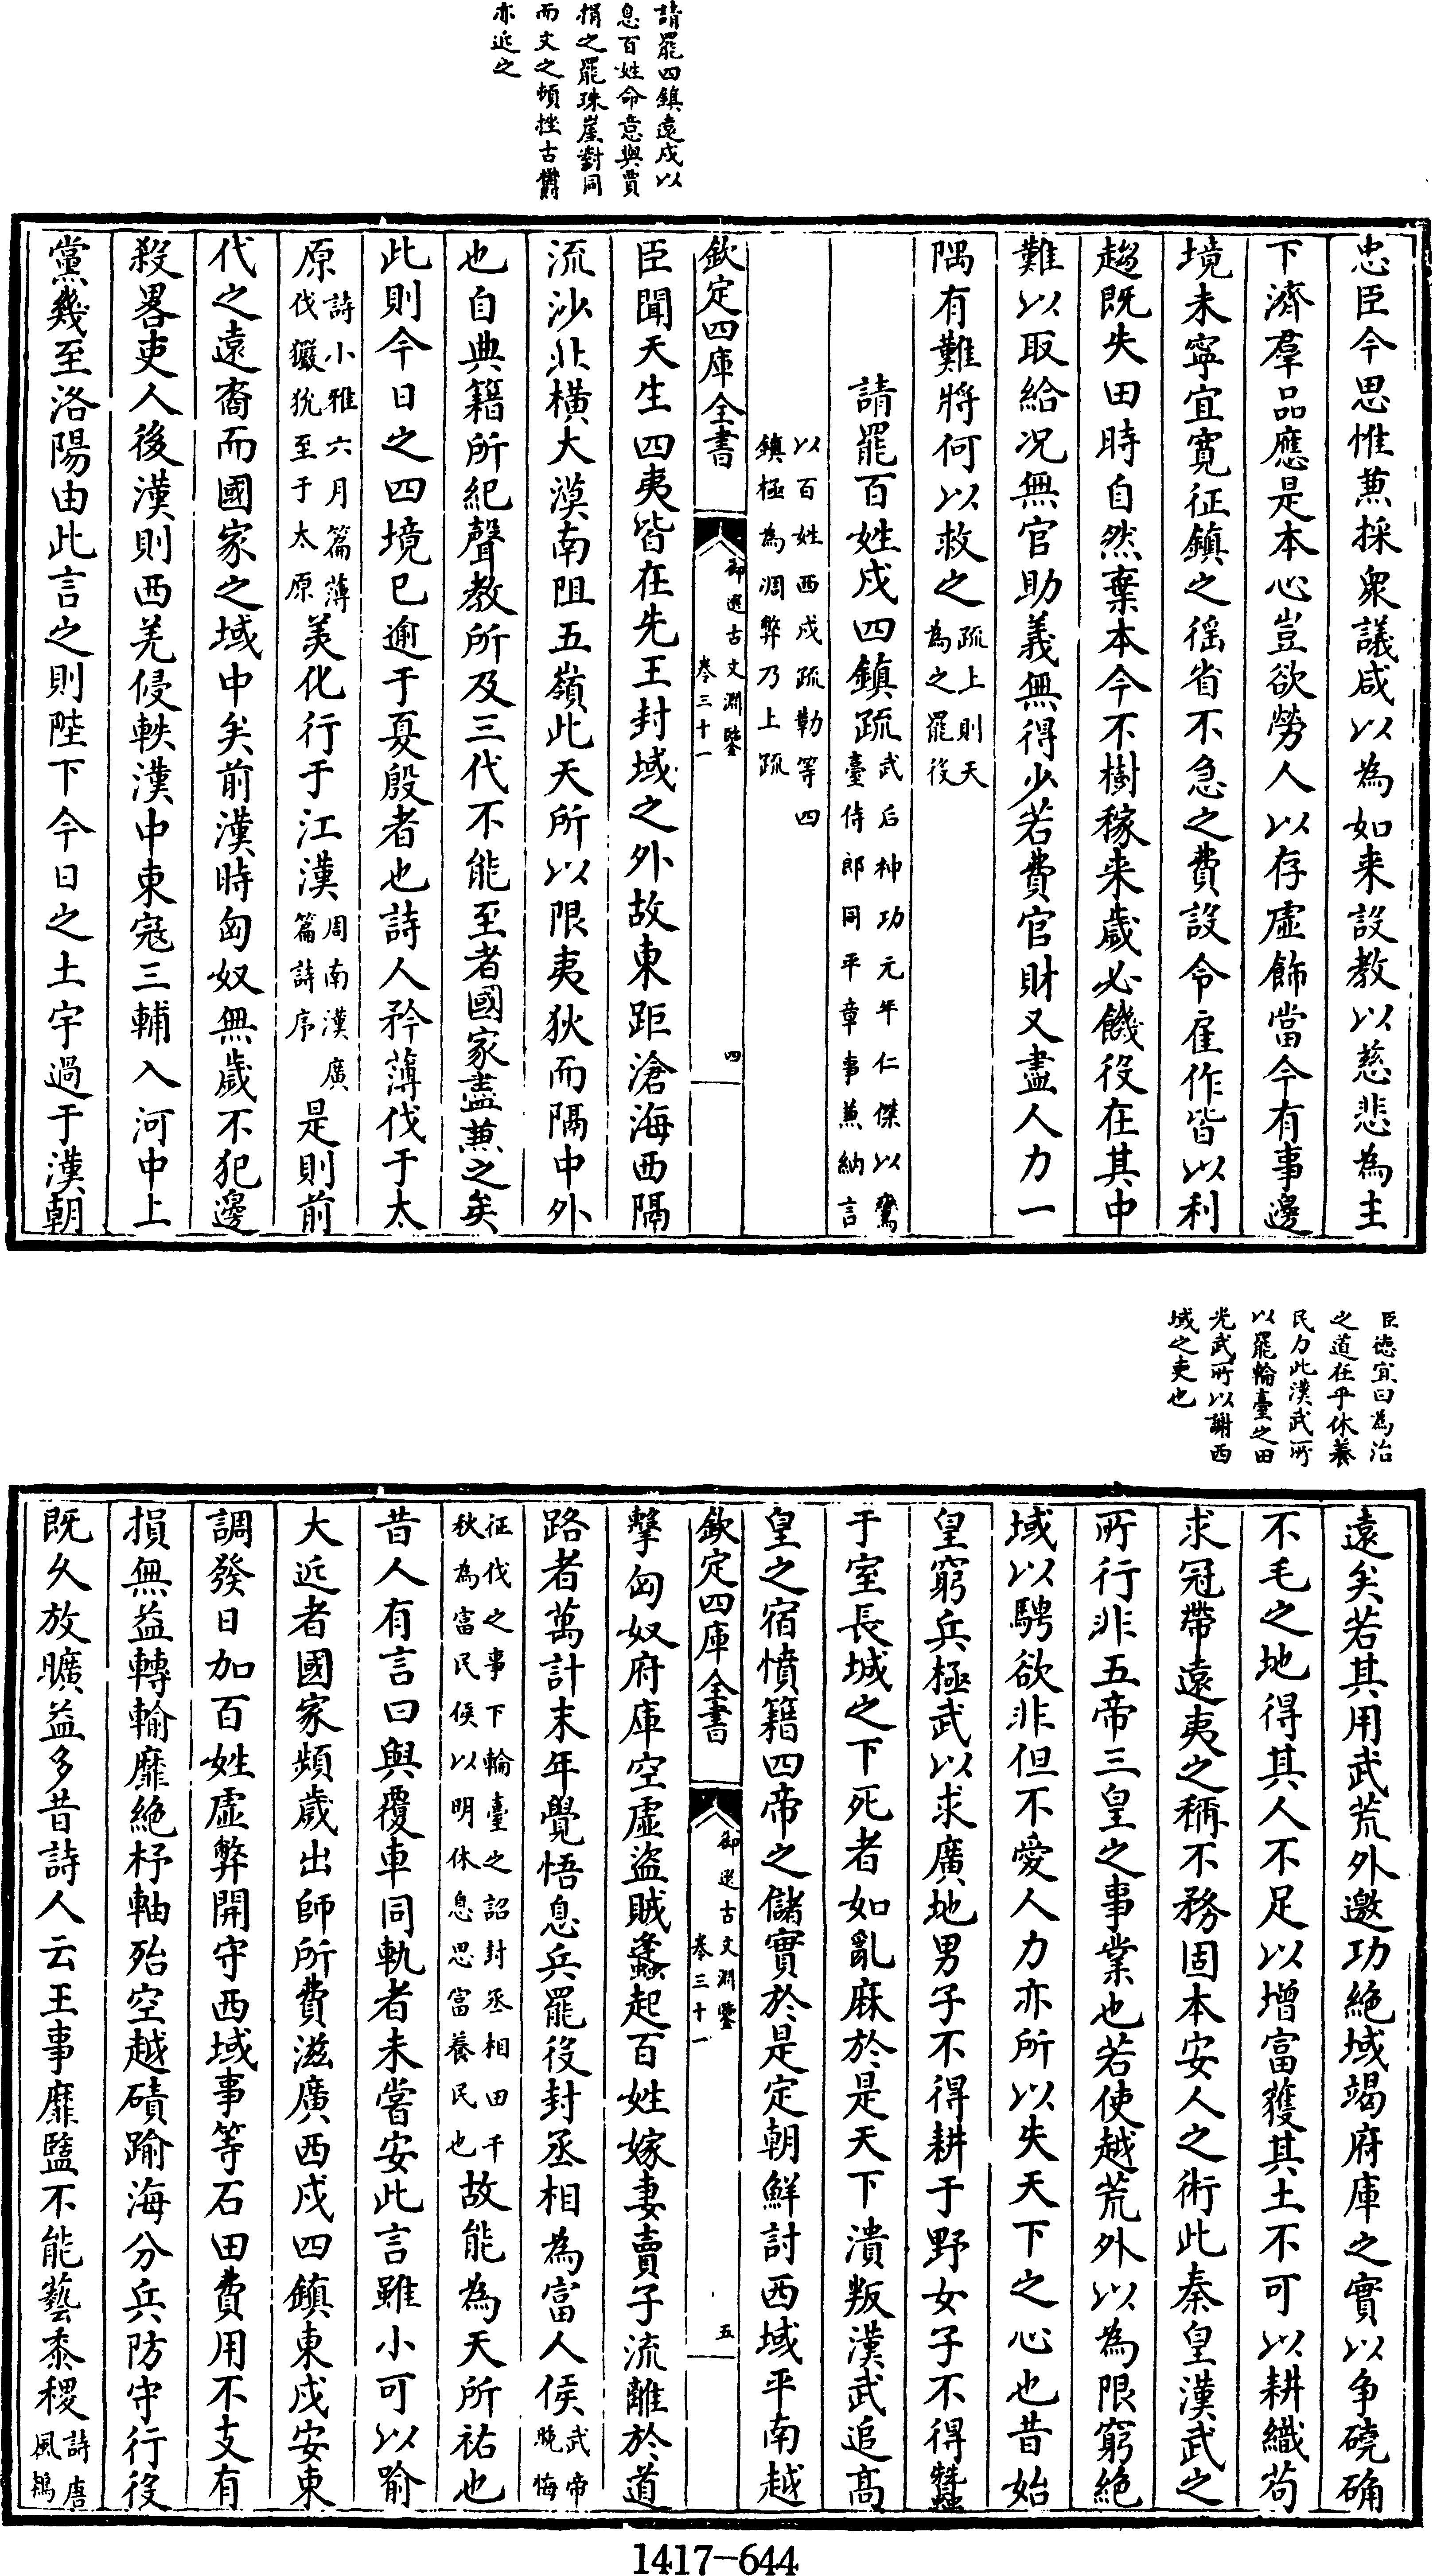 請罷四鎮遠戍以
息百姓命意與賈
捐之罷珠崖對同
而文之頓挫古欝
亦近之
忠臣今思惟兼採衆議咸以為如来設教以慈悲為主
下濟羣品應是本心豈欲勞人以存虛飾當今有事邊
境未寧宜寛征鎮之徭省不急之費設令雇作皆以利
趨既失田時自然棄本今不樹稼来歲必饑役在其中
難以取給况無官助義無得少若費官財又盡人力一
隅有難將何以救之疏上則天
為之罷役
請罷百姓戍四鎮疏武后神功元年仁傑以鸞
臺侍郎同平章事兼納言
以百姓西戍疏勒等四
鎮極為凋弊乃上疏
欽定四庫全書
御選古文淵鑒
卷三十一
四
臣聞天生四夷皆在先王封域之外故東距滄海西隔
流沙北橫大漠南阻五嶺此天所以限夷狄而隔中外
也自典籍所紀聲教所及三代不能至者國家盡兼之矣
此則今日之四境已逾于夏殷者也詩人矜薄伐于太
原詩小雅六月篇薄
伐玁狁至于太原美化行于江漢周南漢廣
篇詩序是則前
代之遠裔而國家之域中矣前漢時匈奴無歲不犯邊
殺畧吏人後漢則西羌侵軼漢中東寇三輔入河中上
黨幾至洛陽由此言之則陛下今日之土宇過于漢朝
臣徳宜曰為治
之道在乎休養
民力此漢武所
以罷輪臺之田
光武所以謝西
域之吏也
遠矣若其用武荒外邀功絶域竭府庫之實以争磽确
不毛之地得其人不足以增富獲其土不可以耕織茍
求冠帶遠夷之稱不務固本安人之術此秦皇漢武之
所行非五帝三皇之事業也若使越荒外以為限窮絶
域以騁欲非但不愛人力亦所以失天下之心也昔始
皇窮兵極武以求廣地男子不得耕于野女子不得蠶
于室長城之下死者如亂麻於是天下潰叛漢武追髙
皇之宿憤籍四帝之儲實於是定朝鮮討西域平南越
欽定四庫全書
御選古文淵鑒
卷三十一
五
擊匈奴府庫空虛盗賊蠭起百姓嫁妻賣子流離於道
路者萬計末年覺悟息兵罷役封丞相為富人侯武帝
晚悔
征伐之事下輪臺之詔封丞相田千
秋為富民侯以明休息思富養民也故能為天所祐也
昔人有言曰與覆車同軌者未嘗安此言雖小可以喻
大近者國家頻歲出師所費滋廣西戍四鎮東戍安東
調發日加百姓虛弊開守西域事等石田費用不支有
損無益轉輸靡絶杼軸殆空越磧踰海分兵防守行役
既久放曠益多昔詩人云王事靡盬不能藝黍稷詩唐
風鴇
1417-644